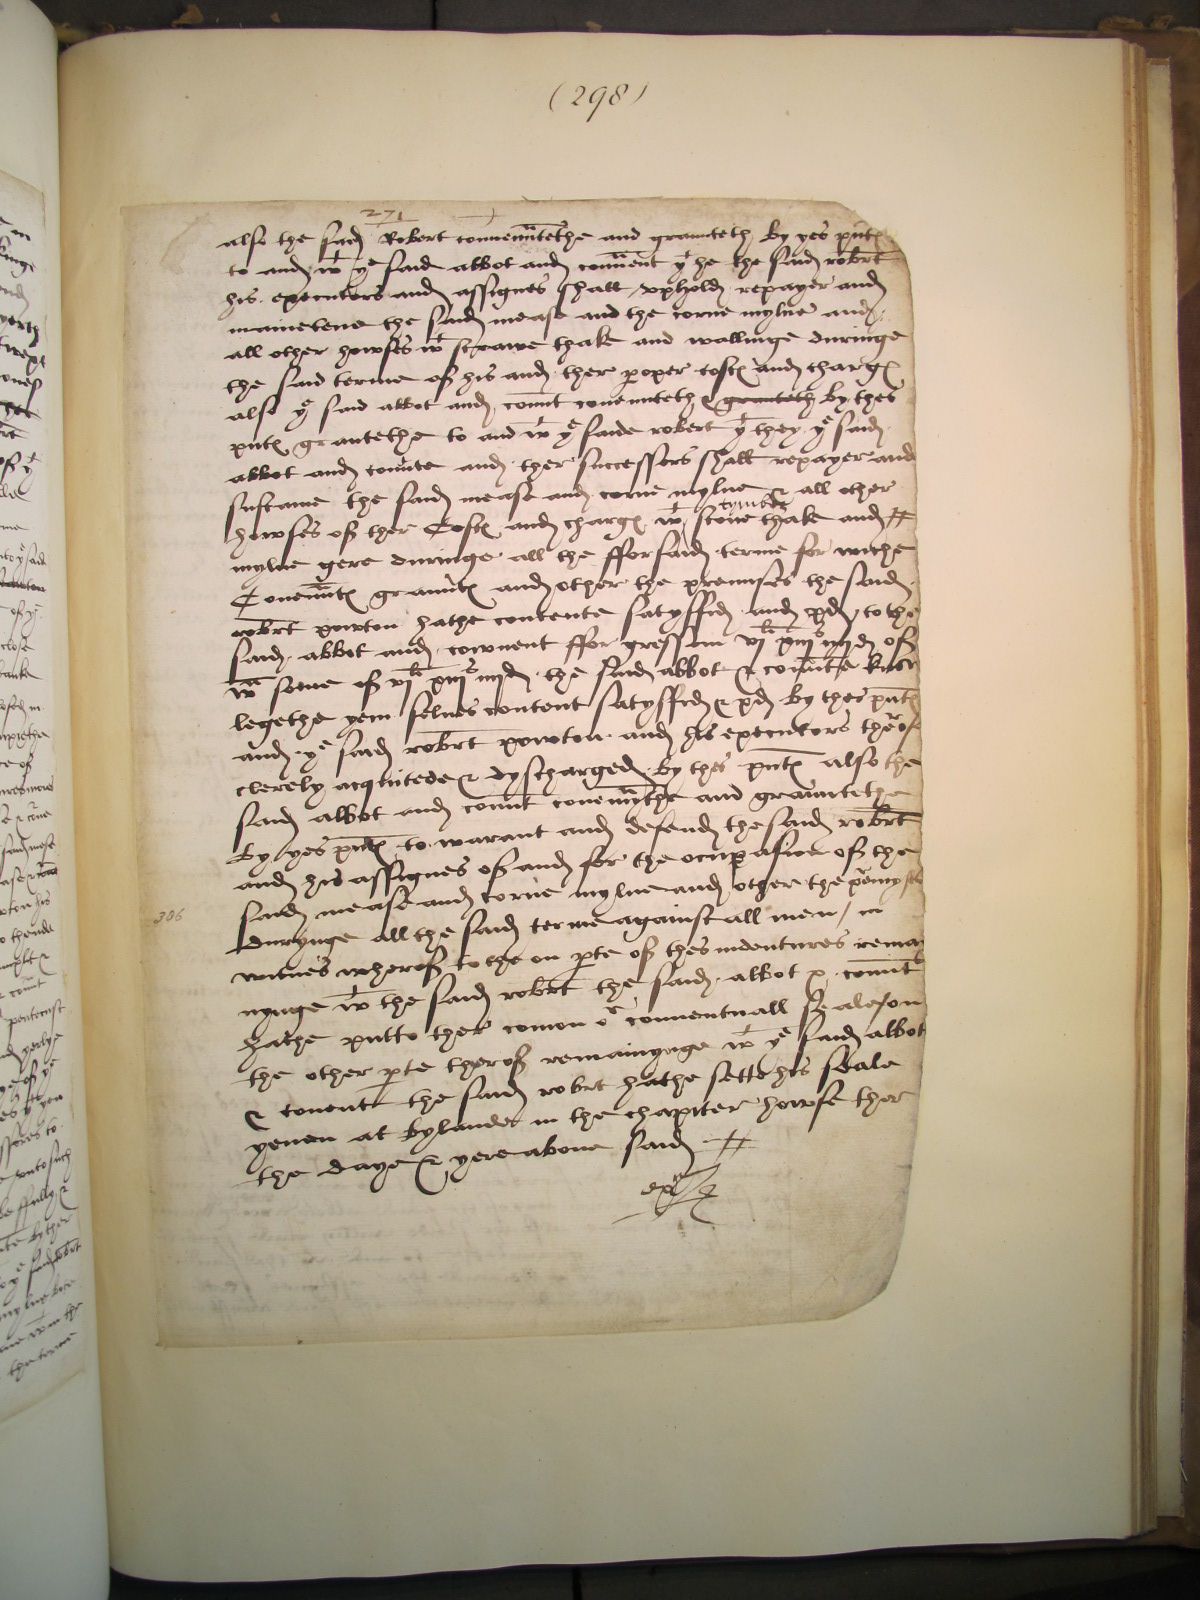 (298)
271
also the said Robert convenntethe and graunteth by yes pntes
to and wt ye said abbot and convent yt he the said robrt
his executors and assignes shall upholde repayer and
maintene the said mease and the corne mylne and
all other howses wt strawe thake and wallinge duringe
the said terme of his and ther proper costes and charges
also ye said abbot and convent convenntethe & graunteth by thes
pntes grantethe to and wt ye saide robert yt they ye said
abbot and convente and ther successors shall repayer and
sustaine the said mease and corne mylne & all other
howses of ther Costes and charges wt tymber stone thake and
mylne gere duringe all the fforsaid terme for wiche
Convenntes grauntes and other the premises the said
robrt powton hathe contente satyffid and pd to the
said abbot and convent ffor gressum vjli xiijs iiijd of
wch some of vjli xiijs iiijd the said abbot & convente know
legethe yem selves content satyffid & pd by thes pntes
and ye said robrt powton and his executors therof
clerely acquitede & dyscharged by thes pntes also the
said abbot and convent convennthe and grauntethe
by yes pntes to warant and defend the said robrt
and his assignes of and for the ocupasion of the
said mease and corne mylne and other the premyses
Durynge all the said terme against all men / in
witnes wherof to the on pte of thes indentures remai
nynge wt the said robrt the said abbot & convent
hathe putto ther comon or conventuall seale / on
the other pte therof remainynge wt ye said abbot
& convent the said robrt hathe sette his seale
yeven at bylande in the chapiter howse ther
the daye & yere above said
exr
306